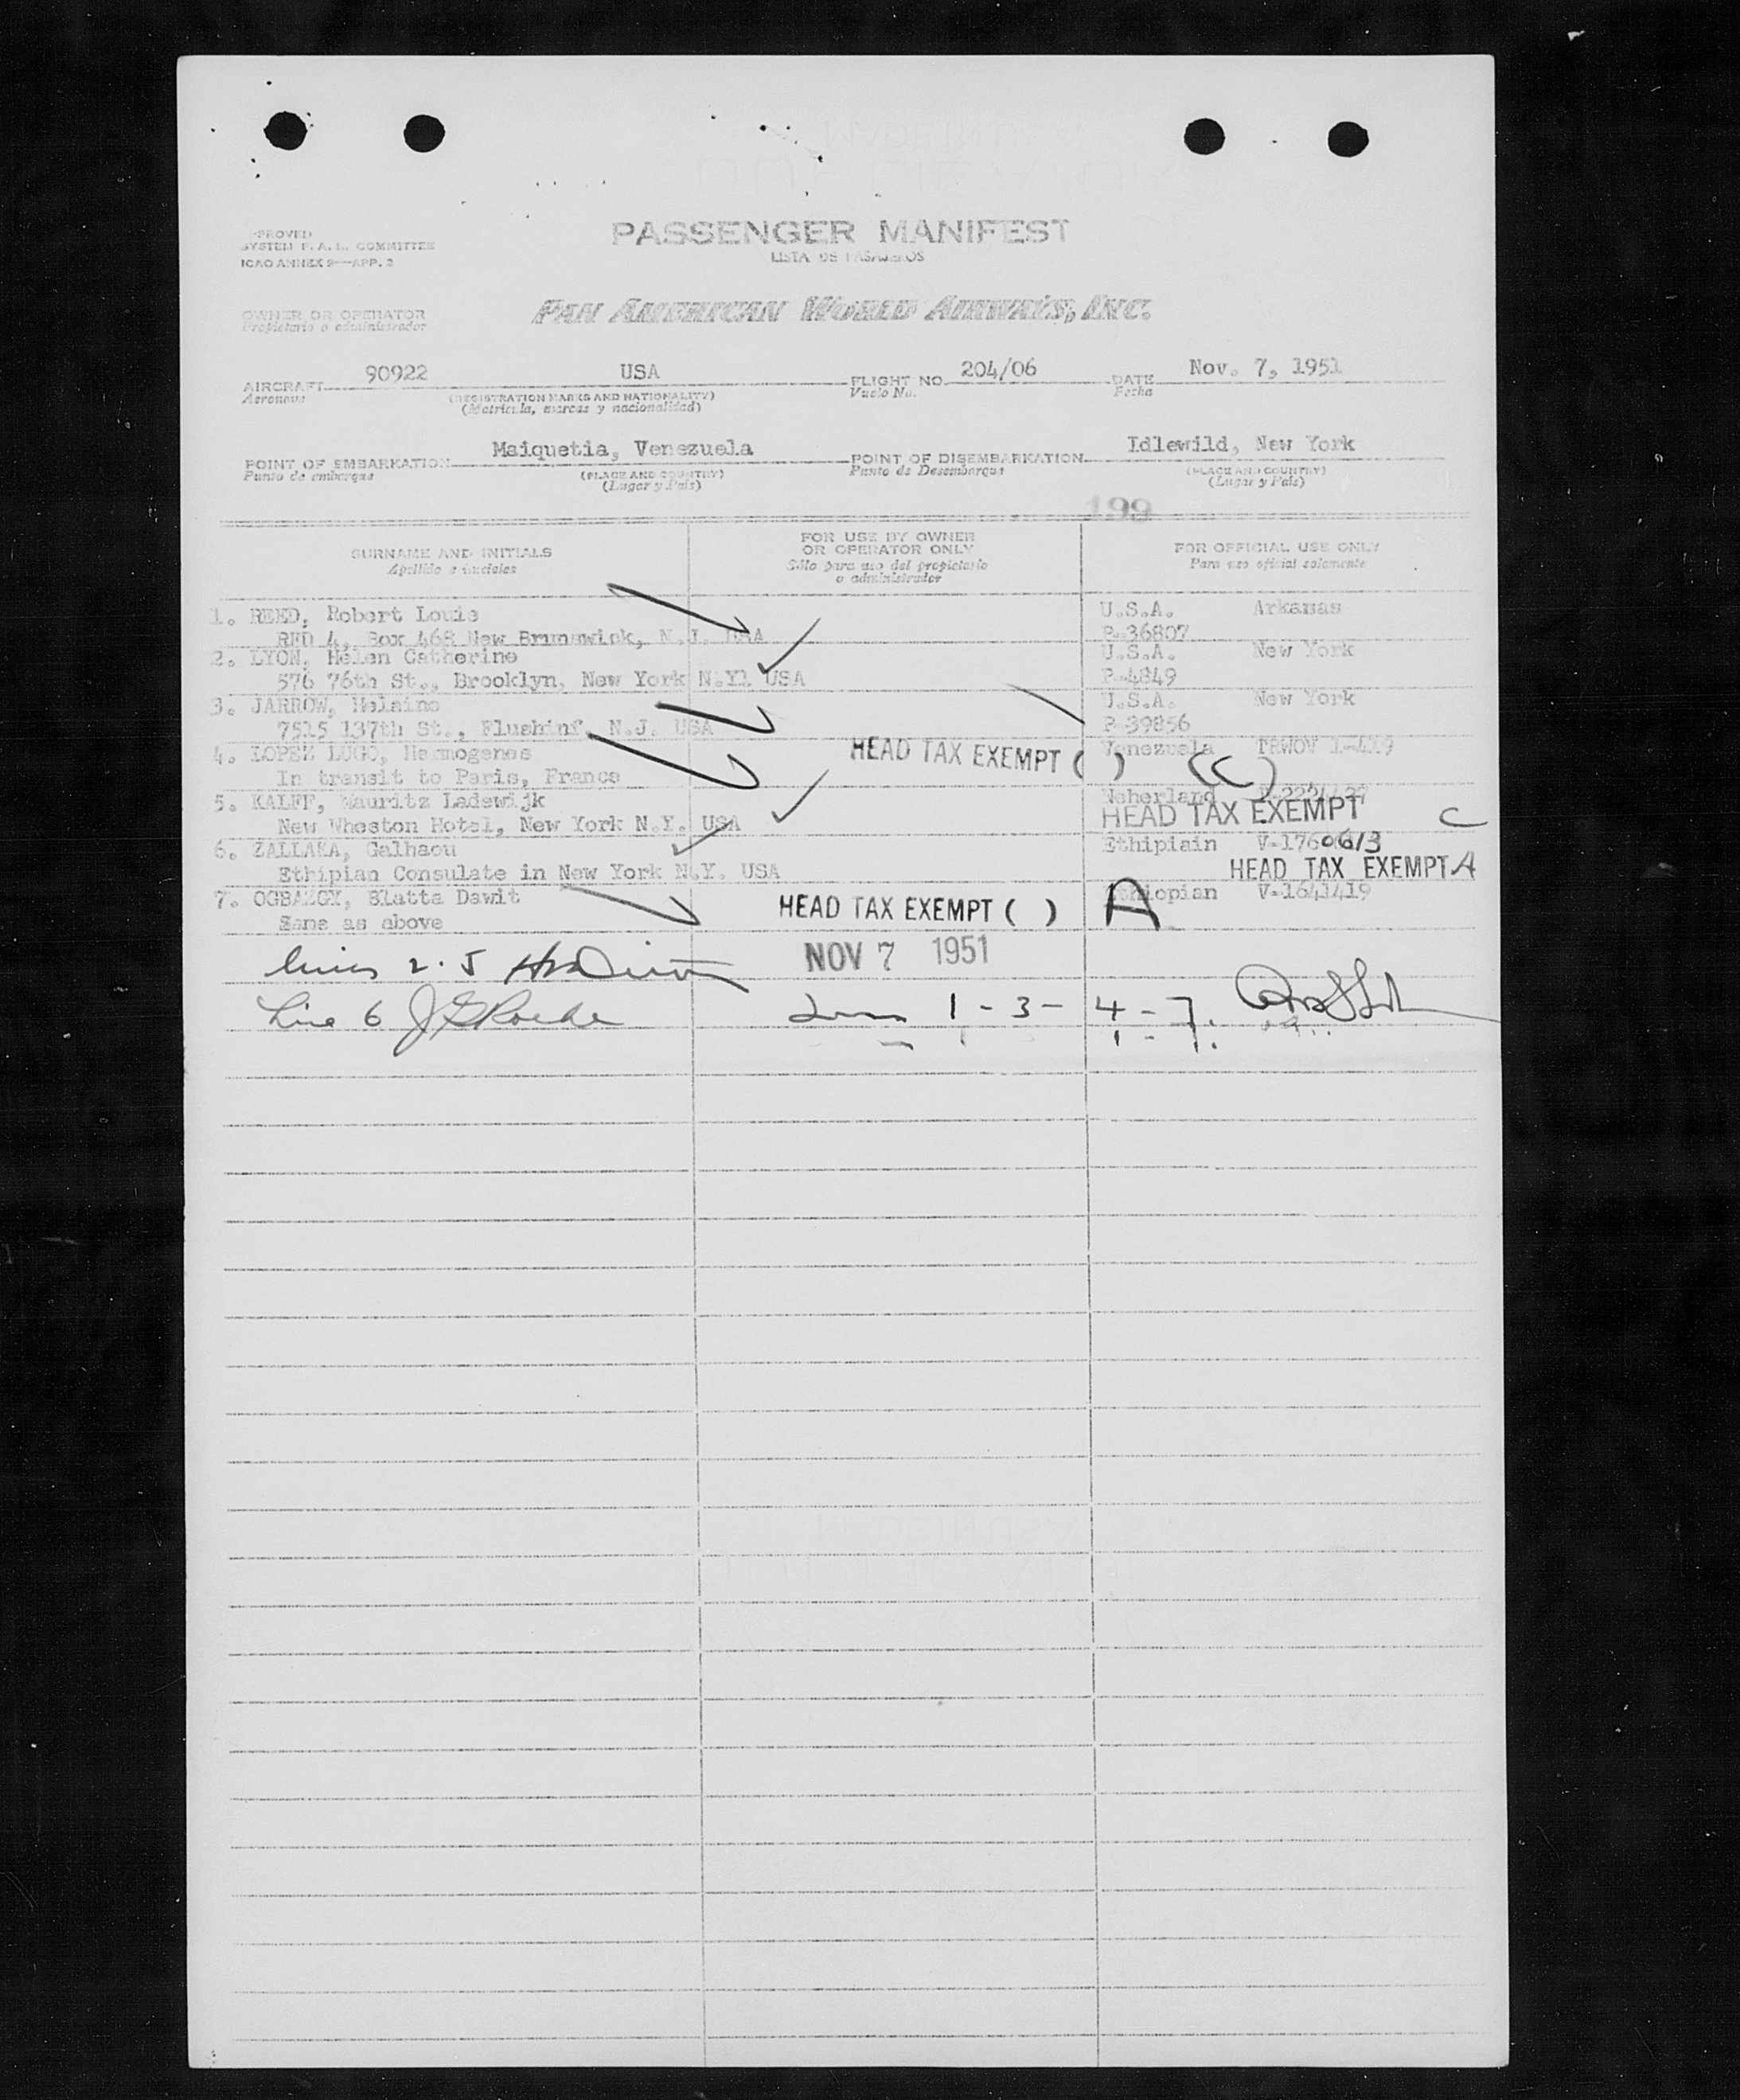 PROVED
SYSTEM F. A. L. COMMITTEE
ICAO ANNEX 9—APP. 3
PASSENGER MANIFEST
LISTA DE PASAJEROS
OWNER OR OPERATOR
Propietario o administrador
PAN AMERICAN WORLD AIRWAYS, INC.
AIRCRAFT 90922 USA FLIGHT NO. 204/06 DATE Nov. 7, 1951
Aeronave (REGISTRATION MARKS AND NATIONALITY) Vuelo No. Fecha
(Matricula, marcas y nacionalidad)
POINT OF EMBARKATION Maiquetia, Venezuela POINT OF DISEMBARKATION Idlewild, New York
Punto de embarque (PLACE AND COUNTRY) Punto de Desembarque (PLACE AND COUNTRY)
(Lugar y Pais) (Lugar y Pais)
199
SURNAME AND INITIALS FOR USE BY OWNER OR OPERATOR ONLY FOR OFFICIAL USE ONLY
Apellido e iniciales Sólo para uso del propietario o administrador Para uso oficial solamente
1. REED, Robert Louis U.S.A. Arkansas
RFD 4, Box 468 New Brunswick, N.J. USA P-36807
2. LYON, Helen Catherine U.S.A. New York
576 76th St., Brooklyn, New York N.Y. USA P-4849
3. JARROW, Helaine U.S.A. New York
7515 137th St., Flushinf, N.J. USA P-39856
4. LOPEZ LUGO, Hermogenes HEAD TAX EXEMPT ( ) Venezuela TRWOV 1-419
In transit to Paris, France (C)
5. KALFF, Mauritz Ladewijk Neherland
New Wheston Hotel, New York N.Y. USA HEAD TAX EXEMPT C
6. ZALLAKA, Galhaou Ethipiain V-1760613
Ethipian Consulate in New York N.Y. USA HEAD TAX EXEMPT A
7. OGBAZGY, Blatta Dawit HEAD TAX EXEMPT ( ) A Ethiopian V-1641419
Same as above
Lines 2·5 NOV 7 1951
Line 6 Lines 1 - 3 - 4 - 7.